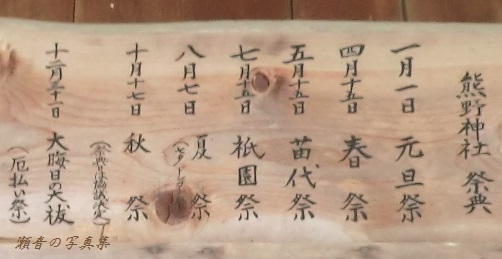 熊野神社 祭典
一月一日 元旦祭
四月十五日 春祭
五月十二日 苗代祭
七月十五日 祇園祭
八月七日 夏祭
十月十七日 秋祭
十二月三十一日 大晦日の大祓
(厄払い祭)
瀬音の写真集